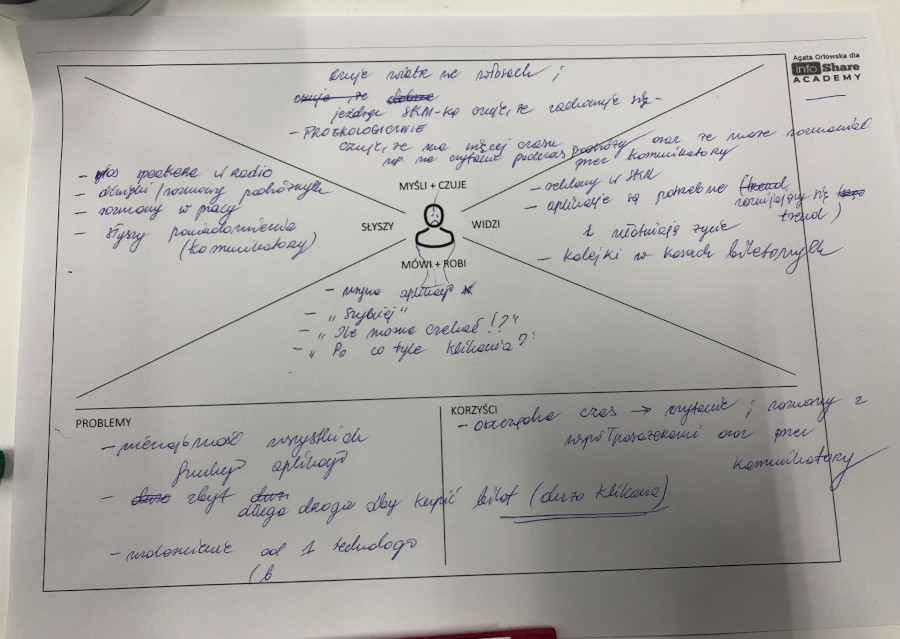 Agata Orłowska dla
info Share
ACADEMY
czuje wiatr we włosach ;
czuje, że dobrze
jeżdżąc SKM-ką czuje, że zachowuje się
- PROEKOLOGICZNIE
czuje, że ma więcej czasu
np. na czytanie podczas podróży oraz że może rozmawiać
przez komunikatory
MYŚLI + CZUJE
- głos spikera w radio
- dźwięki / rozmowy podróżnych
- rozmowy w pracy
- słyszy powiadomienia
(komunikatory)
SŁYSZY
WIDZI
- reklamy w SKM
- aplikacje są potrzebne (trend
rozwijający się
trend)
i ułatwiają życie
- kolejki w kasach biletowych
MÓWI + ROBI
- używa aplikacji
- „Szybciej"
- „Ile można czekać!?"
- „Po co tyle klikania?"
PROBLEMY
- nieznajomość wszystkich
funkcji aplikacji
- dużo zbyt
długa droga aby kupić bilet (dużo klikania)
- uzależnienie od 1 technologii
(b
KORZYŚCI
- oszczędza czas → czytanie i rozmowy z
współpasażerami oraz przez
komunikatory